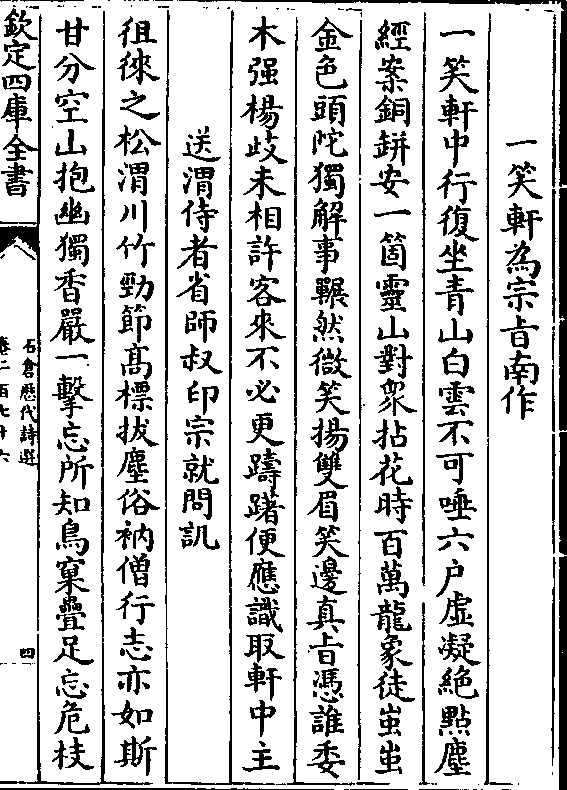 一笑軒為宗㫖南作
一笑軒中行復坐青山白雲不可唾六户虚凝絶點塵
經案銅缾安一箇靈山對衆拈花時百萬龍象徒蚩蚩
金色頭陀獨解事冁然微笑揚雙眉笑邊真㫖憑誰委
木强楊歧未相許客來不必更躊躇便應識取軒中主
送渭侍者省師叔印宗就問訊
徂徠之松渭川竹勁節髙標拔塵俗衲僧行志亦如斯
甘分空山抱幽獨香嚴一擊忘所知鳥窠疊足忘危枝
欽定四庫全書
石倉歷代詩選
卷二百七十六
四